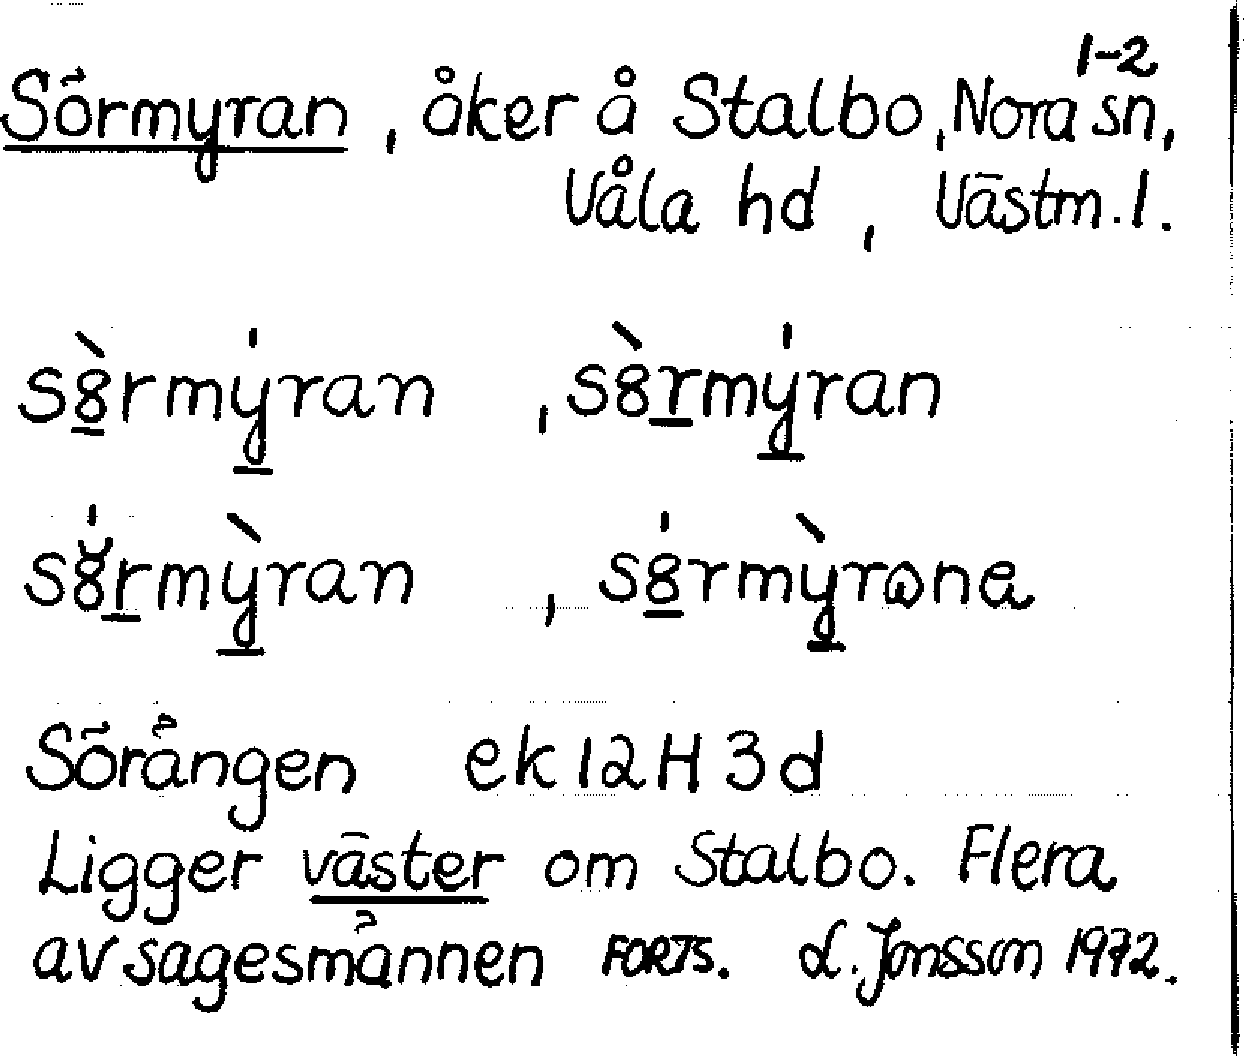 1-2
Sörmyran, åker å Stalbo, Nora sn,
Våla hd, Västm. l.
s8̀rmýran, s8̀rmýran
s8́rmỳran, s8́rmỳrωna
Sörängen ek 12H 3d
Ligger väster om Stalbo. Flera
av sagesmännen FORTS. L. Jonsson 1972.